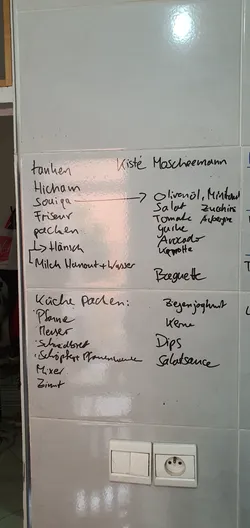 tanken
Hicham
souiqa
Friseur
packen
↳ Hänsch
Milch Hanout + Wasser
Kisté Moscheemann
Olivenöl,
Salat Zuchini
Tomate Aubergine
Gurke
Avocado
Karotte
Baguette
Küche packen:
Pfanne
Messer
Schneidbrett
Mixer
Zimt
Ziegenjoghurt
Kerne
Dips
Salatsauce